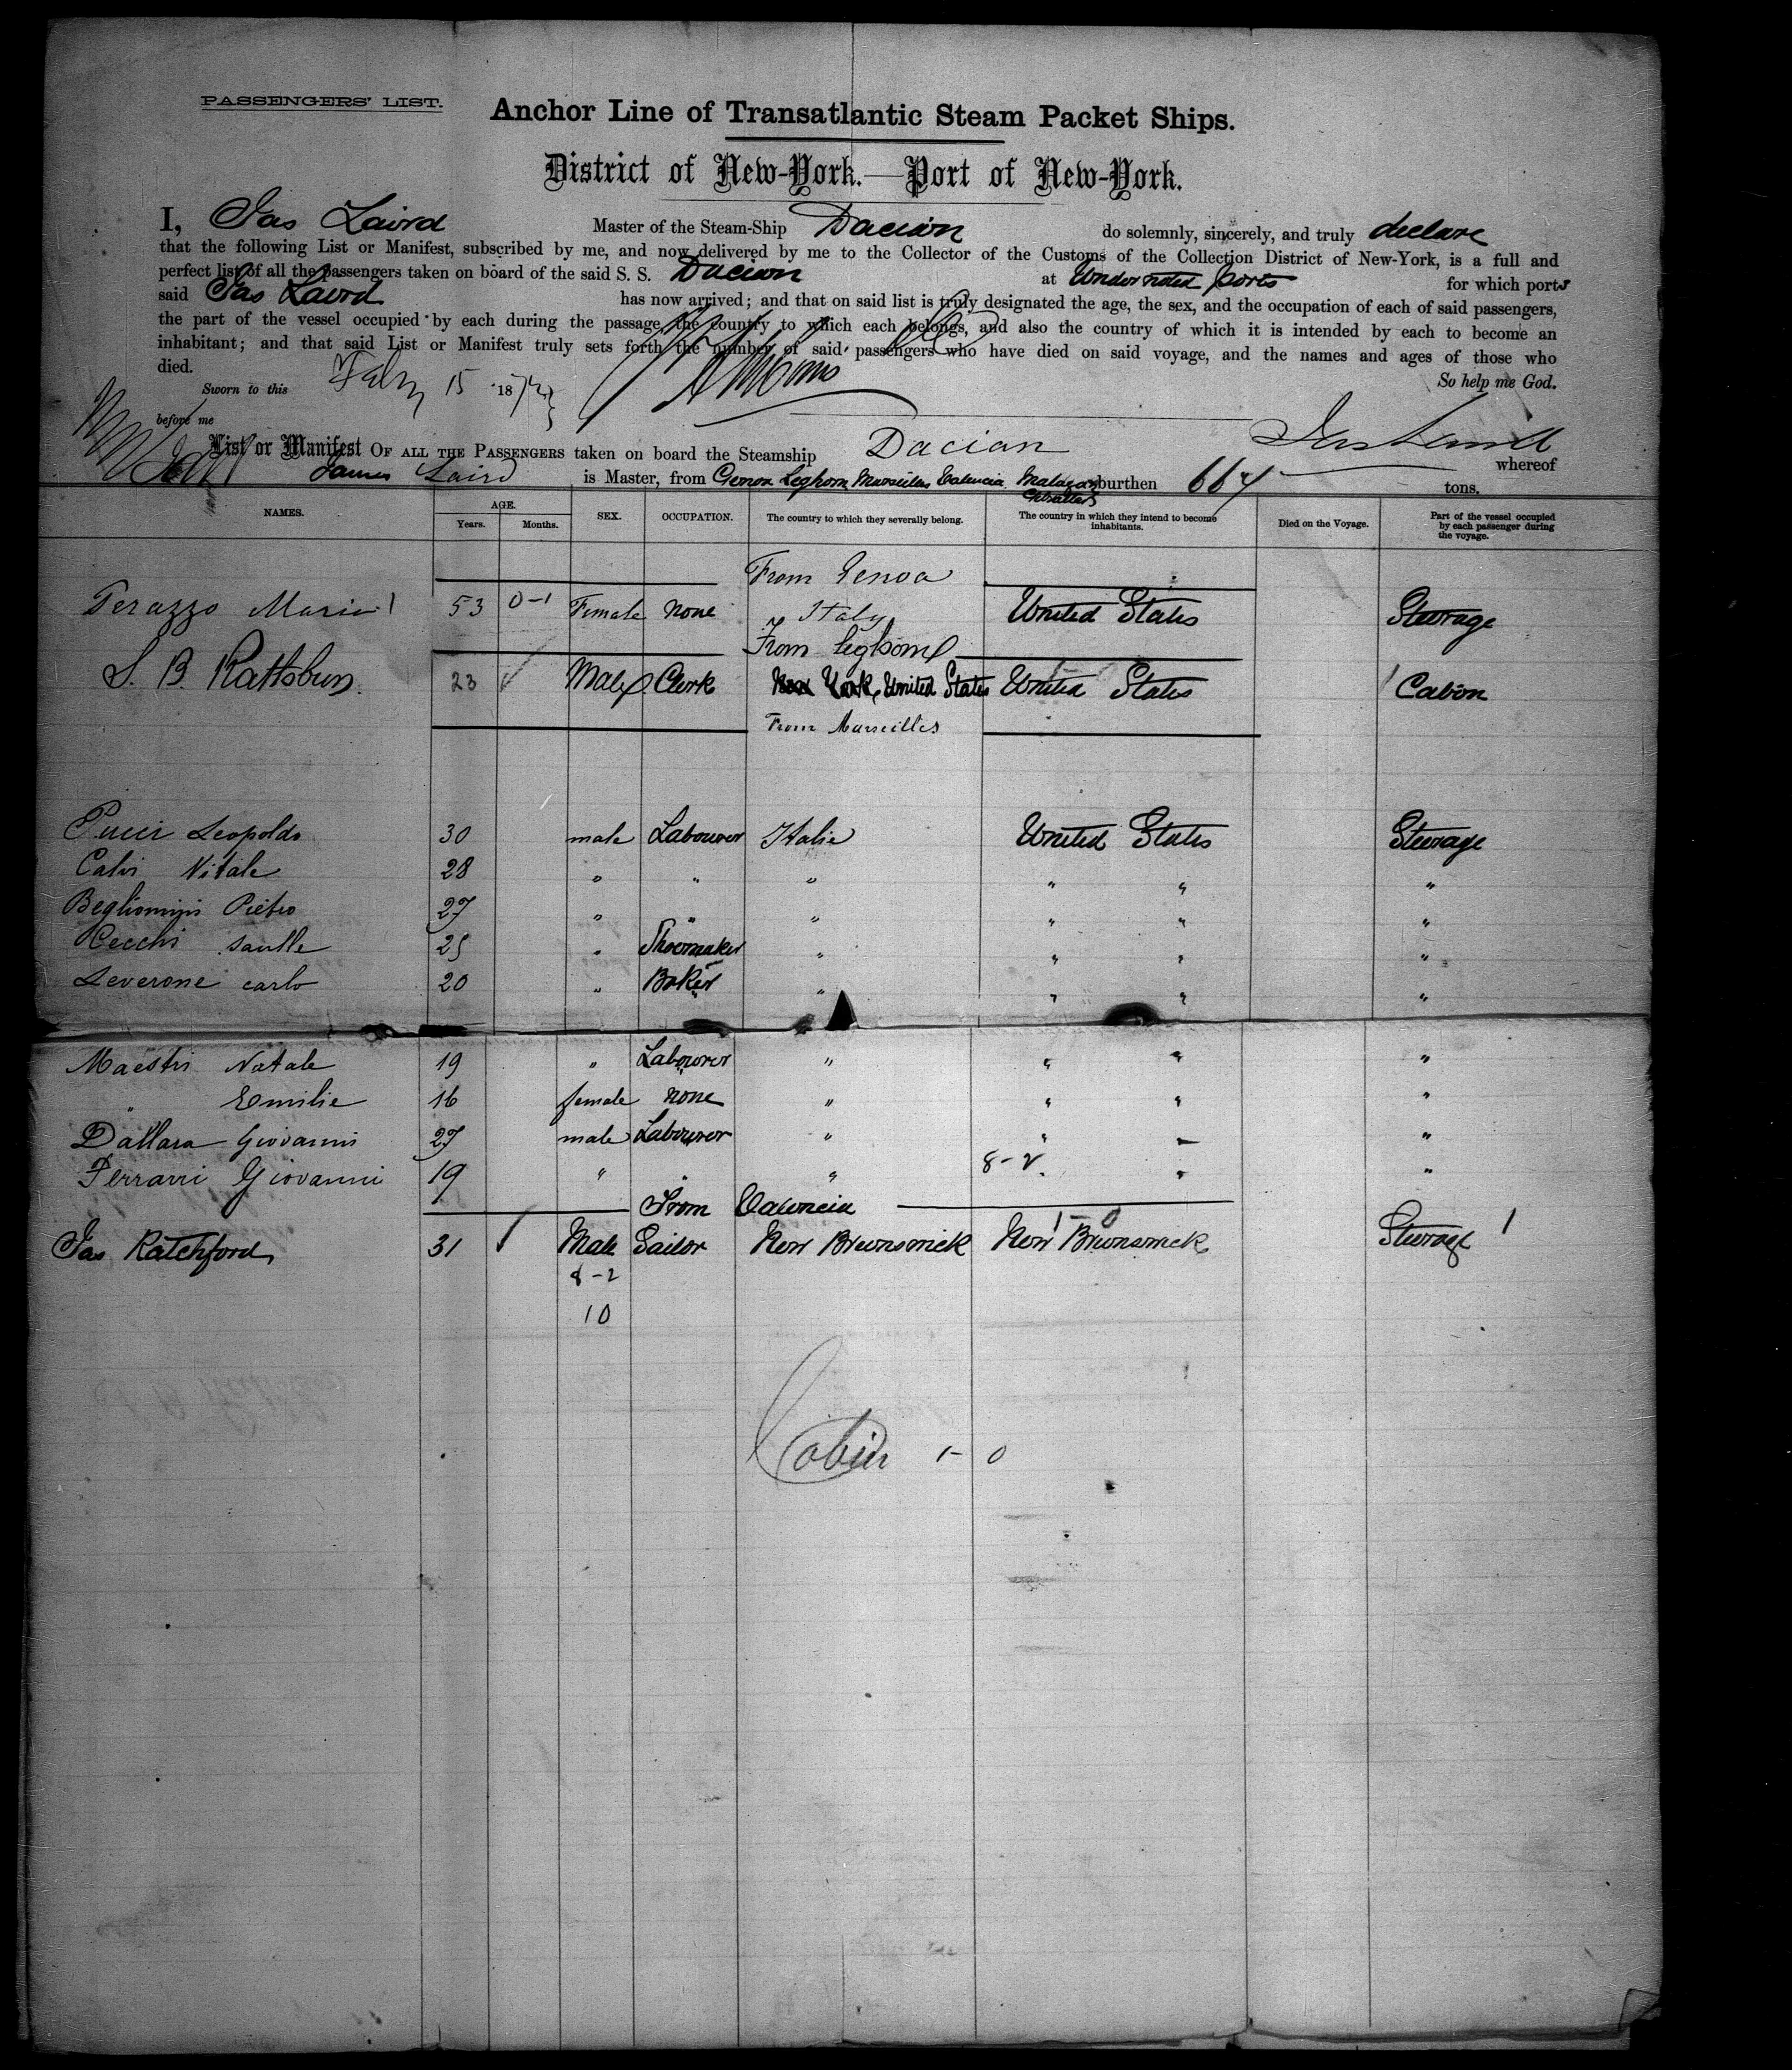 PASSENGERS' LIST.
Anchor Line of Transatlantic Steam Packet Ships.
District of New-York.—Port of New-York.
I, Jas Laird Master of the Steam-Ship Dacian do solemnly, sincerely, and truly declare
that the following List or Manifest, subscribed by me, and now delivered by me to the Collector of the Customs of the Collection District of New-York, is a full and
perfect list of all the passengers taken on board of the said S. S. Dacian at Undernoted ports for which ports
said Jas Laird has now arrived; and that on said list is truly designated the age, the sex, and the occupation of each of said passengers,
the part of the vessel occupied by each during the passage, the country to which each belongs, and also the country of which it is intended by each to become an
inhabitant; and that said List or Manifest truly sets forth the number of said passengers who have died on said voyage, and the names and ages of those who
died. So help me God.
Sworn to this Feby 15 187
before me
Jas Laird
List or Manifest OF ALL THE PASSENGERS taken on board the Steamship Dacian whereof
James Laird is Master, from Genoa Leghorn Marseilles Valencia Malaga & Gibraltar burthen 664 tons.
NAMES. AGE. Years. Months. SEX. OCCUPATION. The country to which they severally belong. The country in which they intend to become inhabitants. Died on the Voyage. Part of the vessel occupied by each passenger during the voyage.
From Genoa
Terazzo Maria 1 53 0-1 Female none Italy United States Steerage
From Leghorn
S. B. Rathbun. 23 ✓ Male Clerk New York, United States United States 1 Cabin
From Marseilles
Pucci Leopoldo 30 male Labourer Italie United States Steerage
Calvi Vitale 28 " " " " " "
Begliomini Pietro 27 " " " " " "
Cecchi Saulle 25 " Shoemaker " " " "
Leverone carlo 20 " Baker " " " "
Maestri Natale 19 " Labourer " " " "
" Emilie 16 female none " " " "
Dallara Giovanni 27 male Labourer " " " "
Ferrarri Giovanni 19 " " " 8-2 " "
From Valencia
1-0
Jas Ratchford 31 ✓ Male Sailor New Brunswick New Brunswick Steerage 1
8-2
10
Cabin 1-0